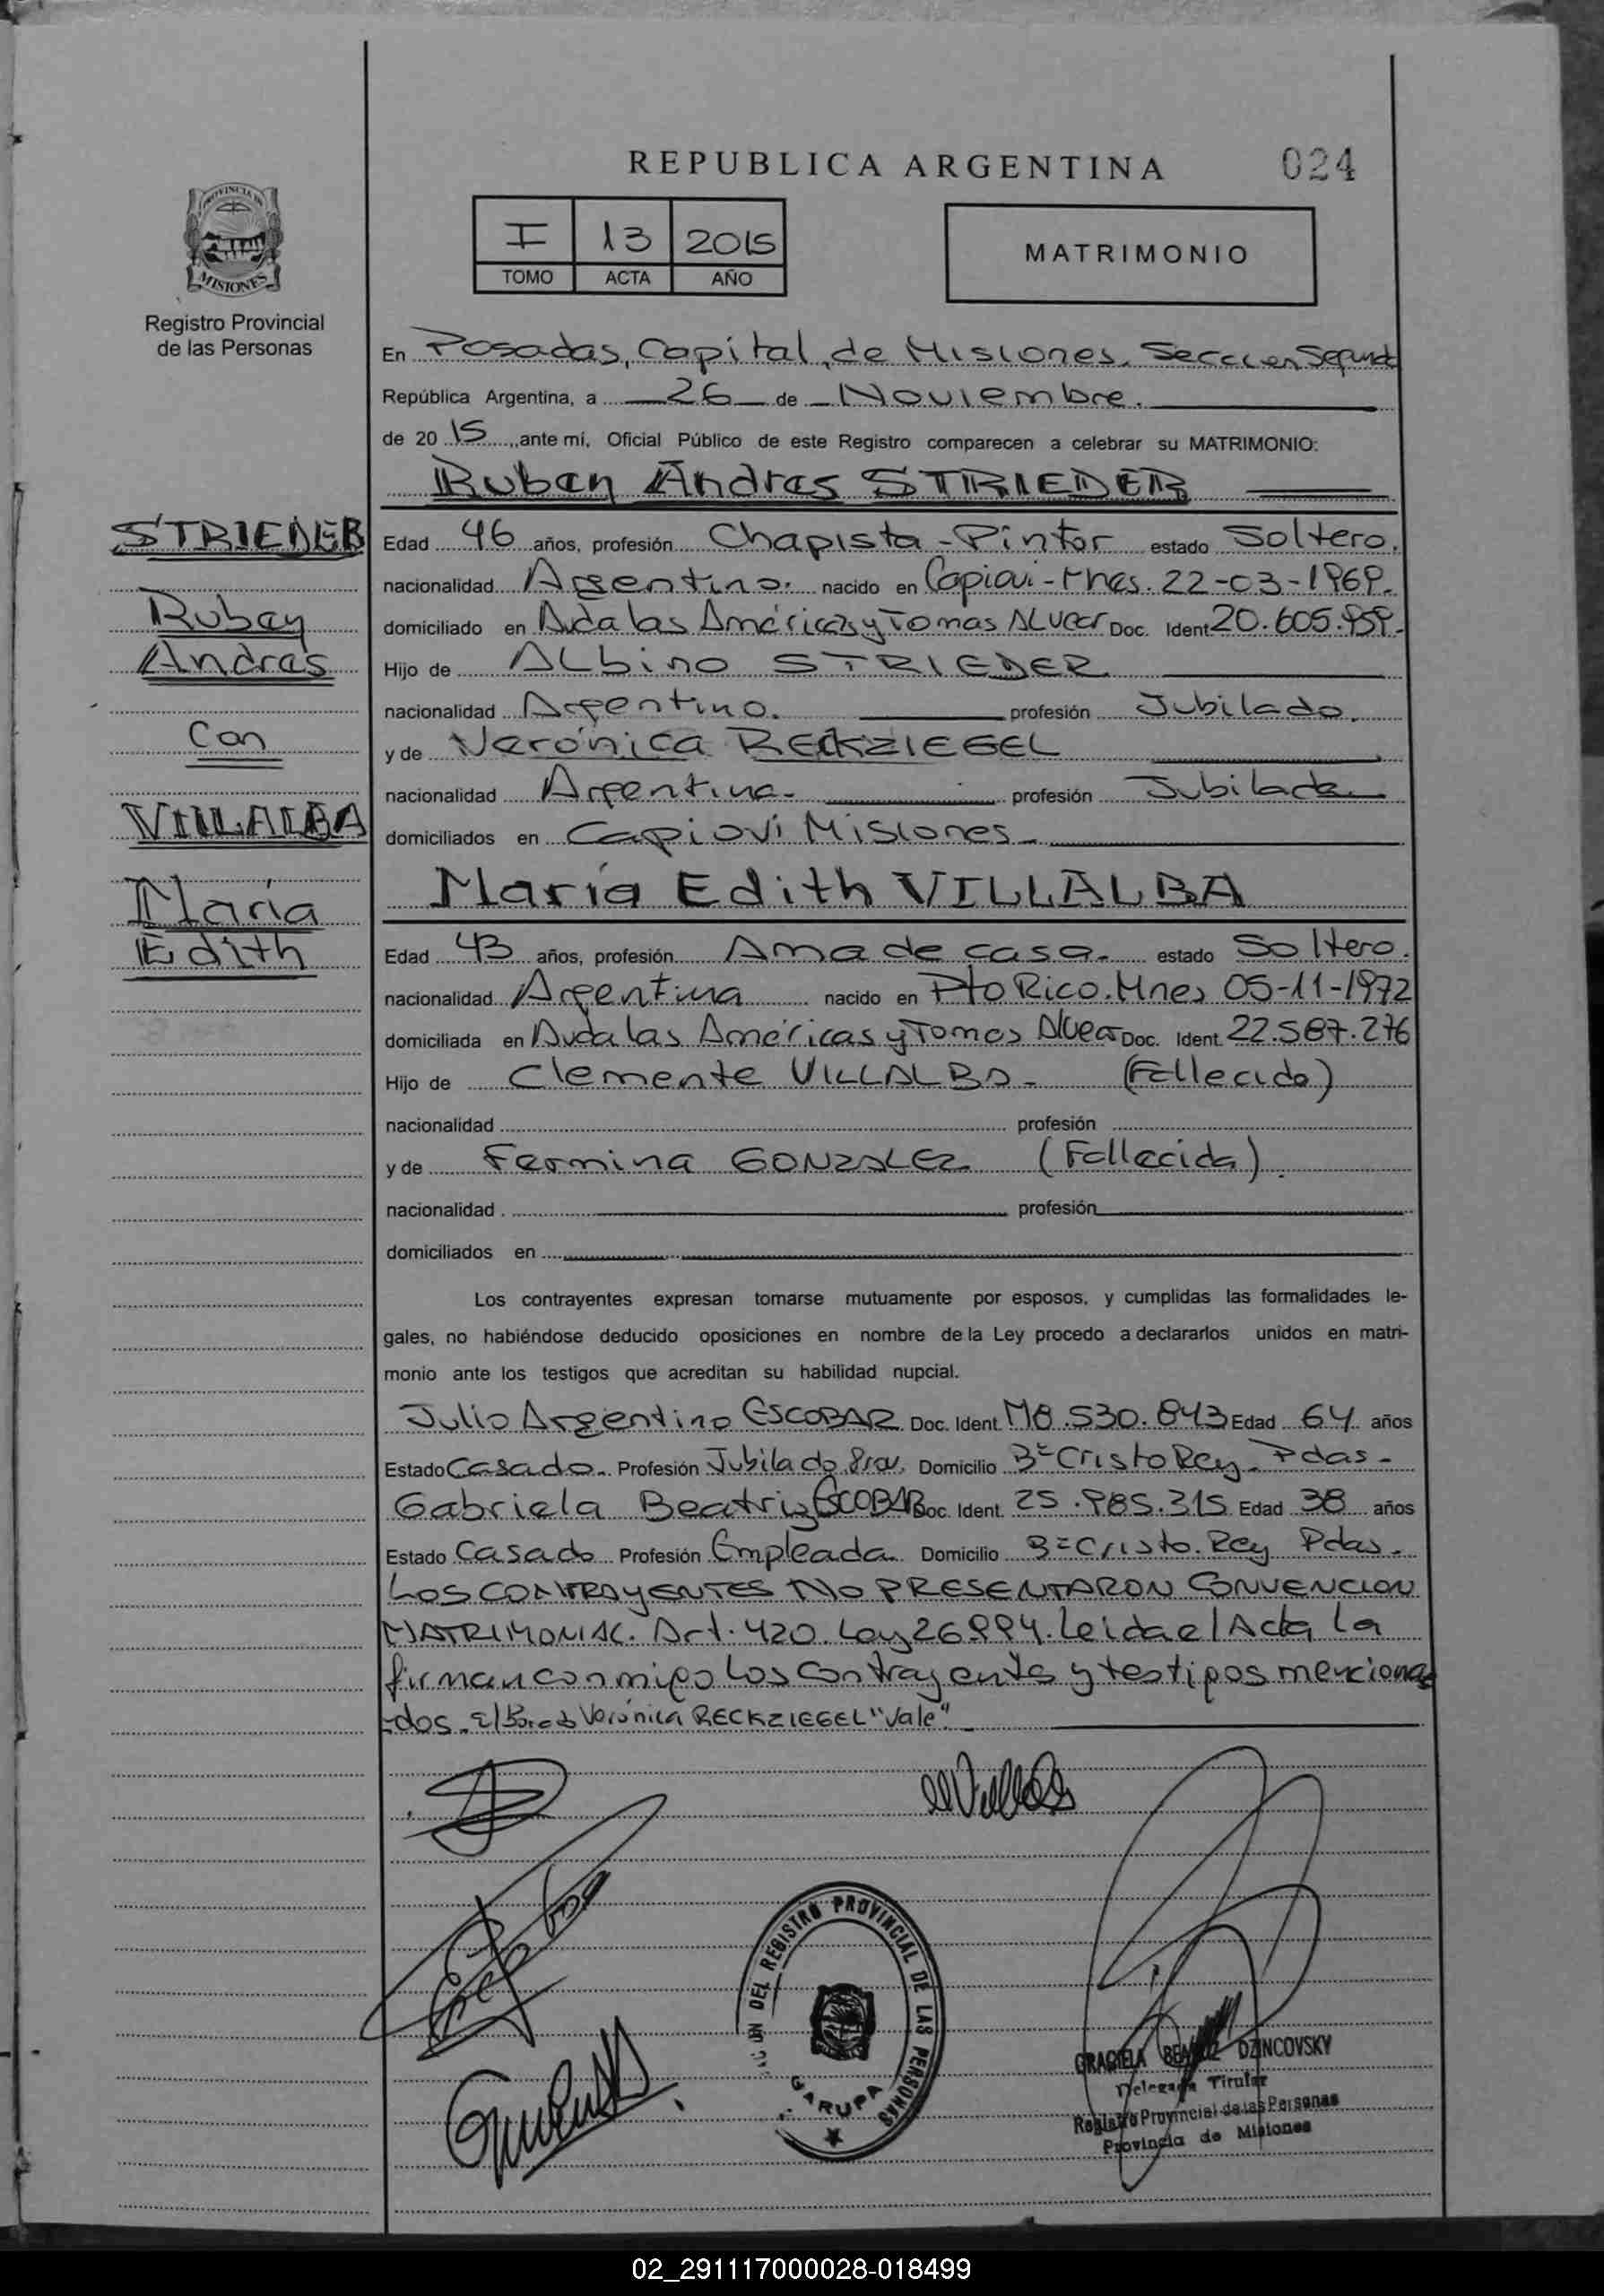 REPUBLICA ARGENTINA
024
PROVINCIA DE
MISIONES
Registro Provincial
de las Personas
I 13 2015
TOMO ACTA AÑO
MATRIMONIO
En Posadas, Capital, de Misiones. Seccion Segunda
República Argentina, a 26 de Noviembre.
de 20 15, ante mí, Oficial Público de este Registro comparecen a celebrar su MATRIMONIO:
Ruben Andres STRIEDER
STRIEDER
Ruben
Andres
Con
VILLALBA
María
Edith
Edad 46 años, profesión Chapista - Pintor estado Soltero.
nacionalidad Argentino. nacido en Capiovi - Mnes. 22-03-1969.
domiciliado en Avda las Américas y Tomas ALvear Doc. Ident 20.605.959.
Hijo de ALbino STRIEDER
nacionalidad Argentino. profesión Jubilado.
y de Verónica RECKZIEGEL
nacionalidad Argentina. profesión Jubilada
domiciliados en Capioví Misiones
María Edith VILLALBA
Edad 43 años, profesión Ama de casa. estado Soltero.
nacionalidad Argentina nacido en Pto Rico. Mnes 05-11-1972
domiciliada en Avda las Américas y Tomas Alvear Doc. Ident. 22.587.276
Hijo de Clemente VILLALBA (Fallecido)
nacionalidad profesión
y de Fermina GONZALEZ (Fallecida).
nacionalidad profesión
domiciliados en
Los contrayentes expresan tomarse mutuamente por esposos, y cumplidas las formalidades le-
gales, no habiéndose deducido oposiciones en nombre de la Ley procedo a declararlos unidos en matri-
monio ante los testigos que acreditan su habilidad nupcial.
Julio Argentino ESCOBAR Doc. Ident. M8.530.843 Edad 64 años
Estado Casado. Profesión Jubilado Prov. Domicilio Bº Cristo Rey - Pdas -
Gabriela Beatriz ESCOBAR Doc. Ident. 25.985.315 Edad 38 años
Estado Casado Profesión Empleada Domicilio Bº Cristo. Rey Pdas.
LOS CONTRAYENTES NO PRESENTARON CONVENCION
MATRIMONIAL. Art. 420. Ley 26.994. Leida el Acta la
firman conmigo los contrayentes y testigos menciona
-dos. Verónica RECKZIEGEL "Vale".
DEL REGISTRO PROVINCIAL DE LAS PERSONAS
GARUPA
GRACIELA BEATRIZ DZINCOVSKY
Delegada Titular
Registro Provincial de las Personas
Provincia de Misiones
02_291117000028-018499